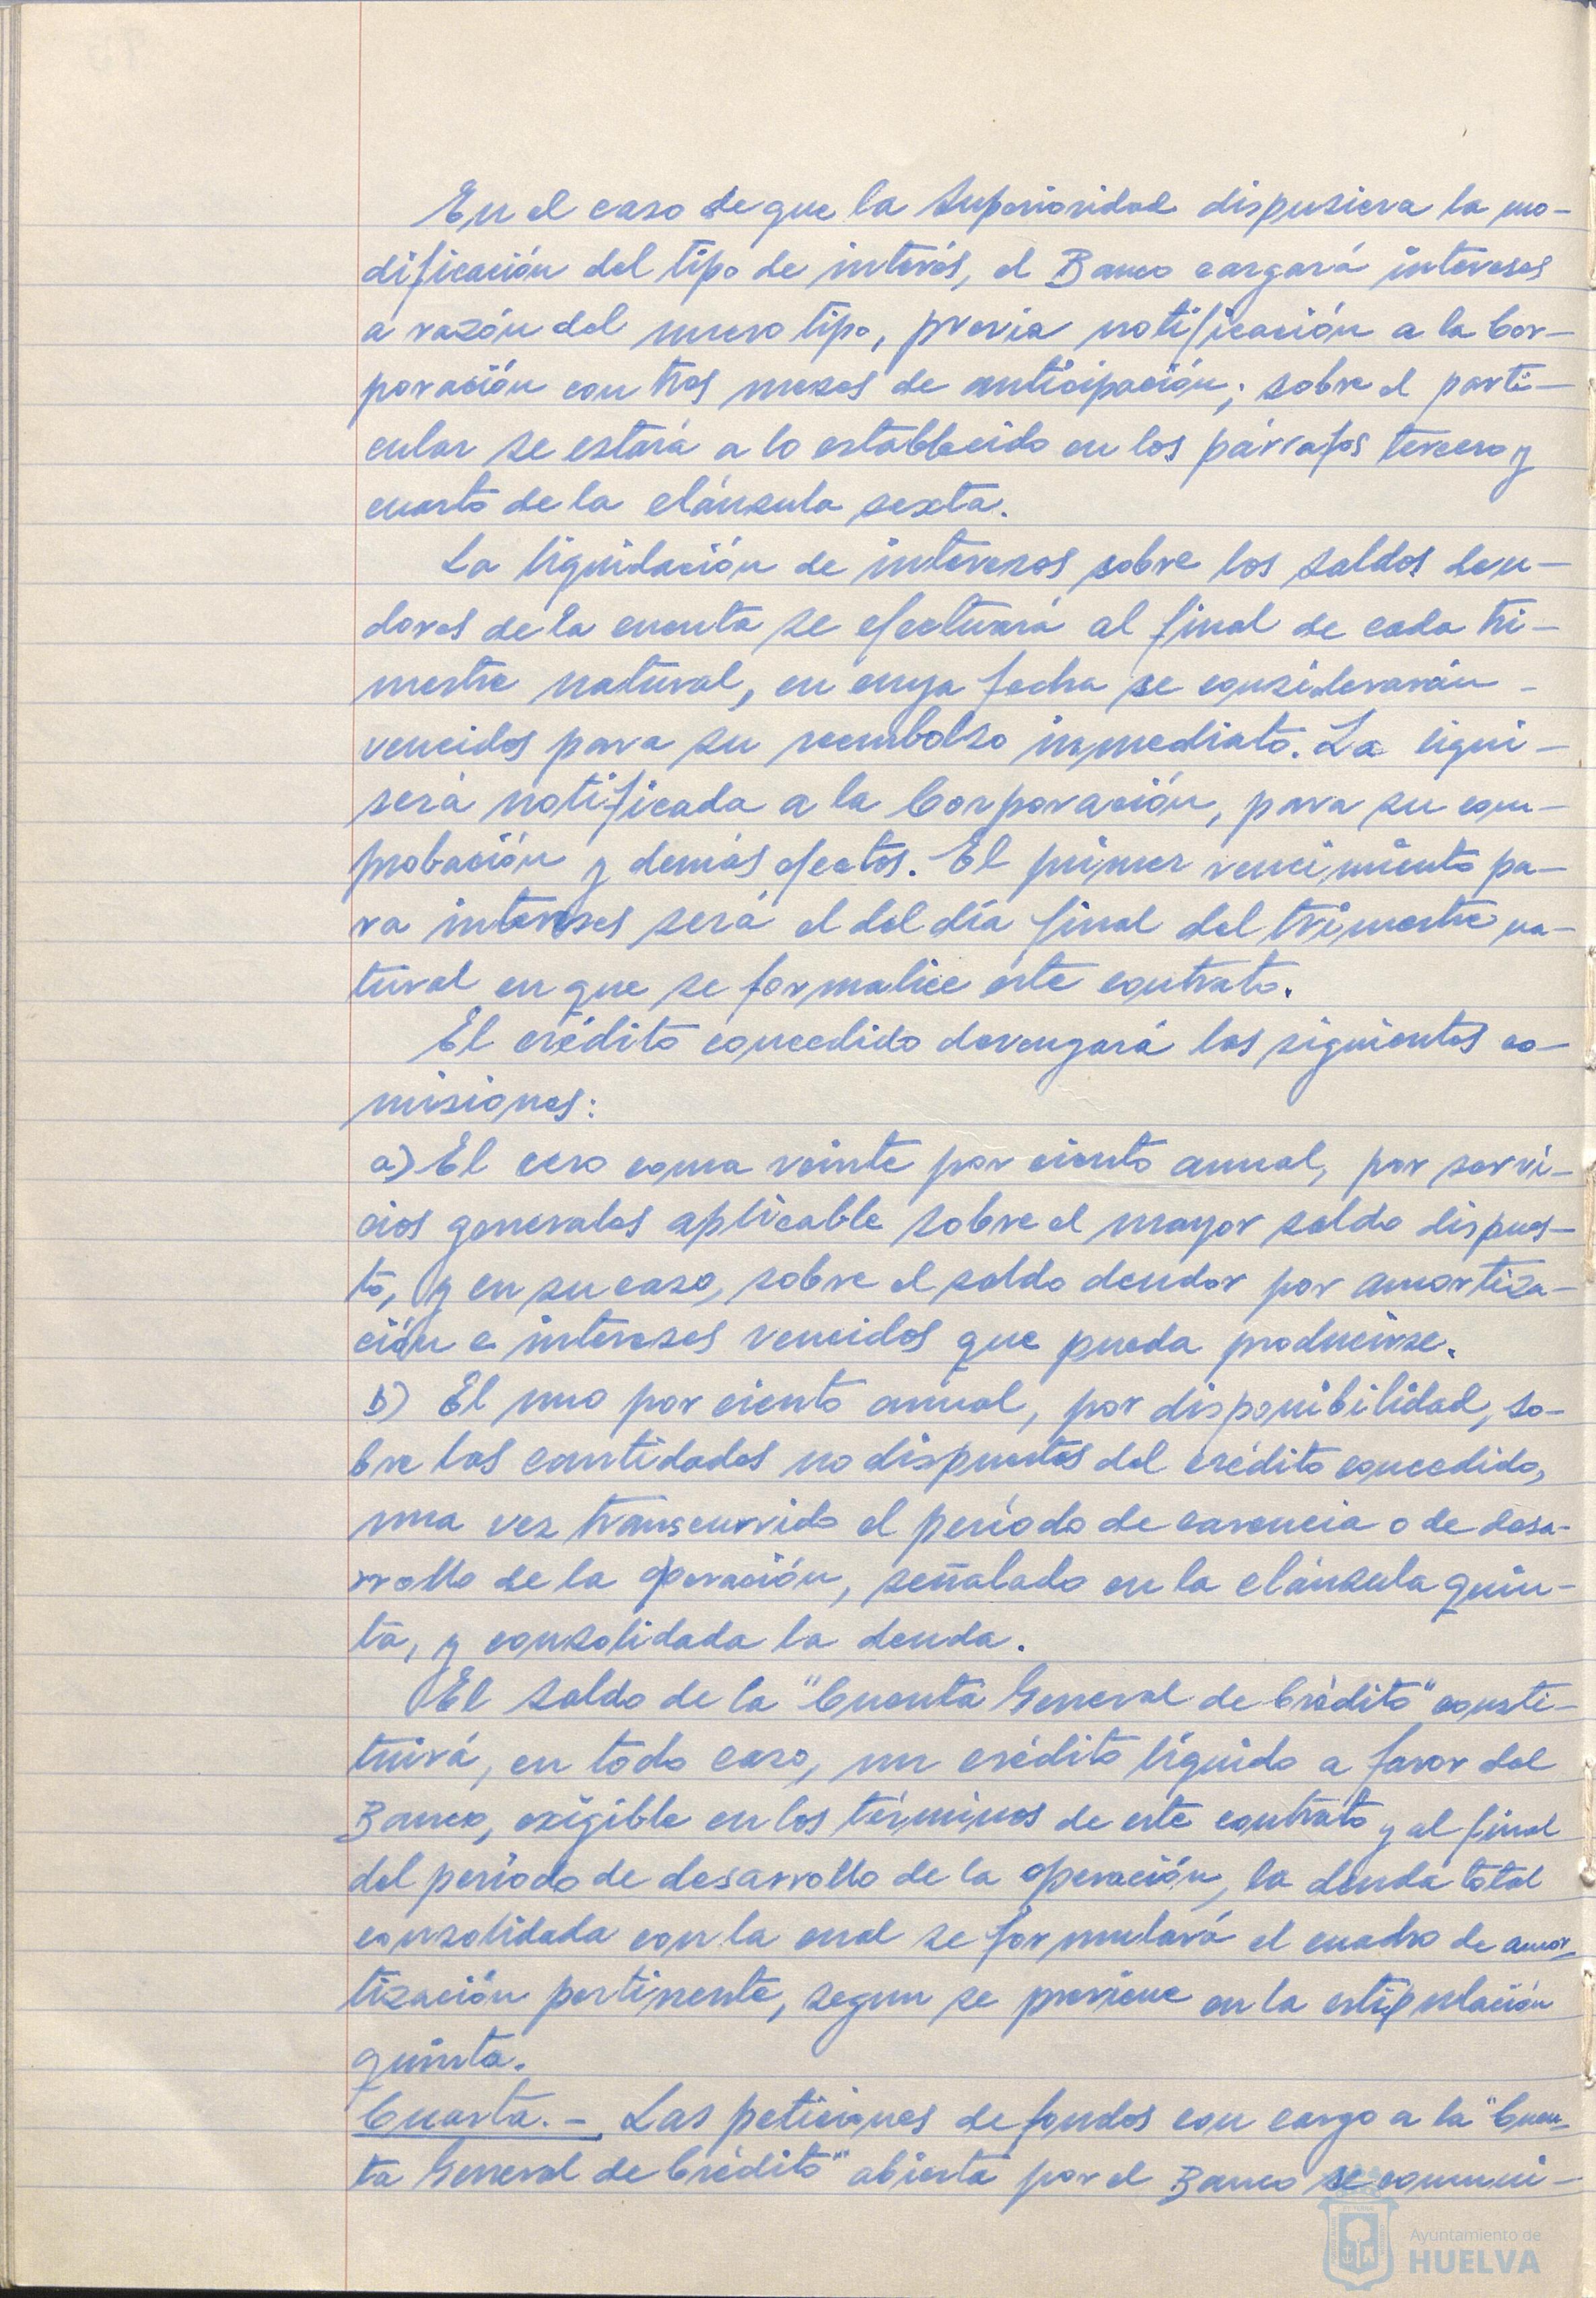 En el caso de que la Superioridad dispusiera la mo-
dificación del tipo de interés, el Banco cargará intereses
a razón del nuevo tipo, previa notificación a la Cor-
poración con tres meses de anticipación; sobre el parti-
cular se estará a lo establecido en los párrafos tercero y
cuarto de la cláusula sexta.
La liquidación de intereses sobre los saldos deu-
dores de la cuenta se efectuará al final de cada tri-
mestre natural, en cuya fecha se considerarán -
vencidos para su reembolso inmediato. La liqui-
será notificada a la Corporación, para su com-
probación y demás efectos. El primer vencimiento pa-
ra intereses será el del día final del trimestre na-
tural en que se formalice este contrato.
El crédito concedido devengará las siguientes co-
misiones:
a) El cero coma veinte por ciento anual, por servi-
cios generales aplicable sobre el mayor saldo dispues-
to, y en su caso, sobre el saldo deudor por amortiza-
ción e intereses vencidos que pueda producirse.
b) El uno por ciento anual, por disponibilidad, so-
bre las cantidades no dispuestas del crédito concedido,
una vez transcurrido el período de carencia o de desa-
rrollo de la operación, señalado en la cláusula quin-
ta, y consolidada la deuda.
El saldo de la "Cuenta General de Crédito" consti-
tuirá, en todo caso, un crédito líquido a favor del
Banco, exigible en los términos de este contrato y al final
del período de desarrollo de la operación, la deuda total
consolidada con la cual se formulará el cuadro de amor-
tización pertinente, segun se previene en la estipulación
quinta.
Cuarta. - Las peticiones de fondos con cargo a la "Cuen-
ta General de Crédito" abierta por el Banco se comuni-
Ayuntamiento de
HUELVA